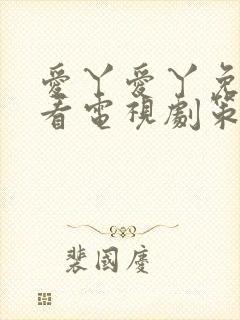 愛丫愛丫免
看電視劇策
裴國慶